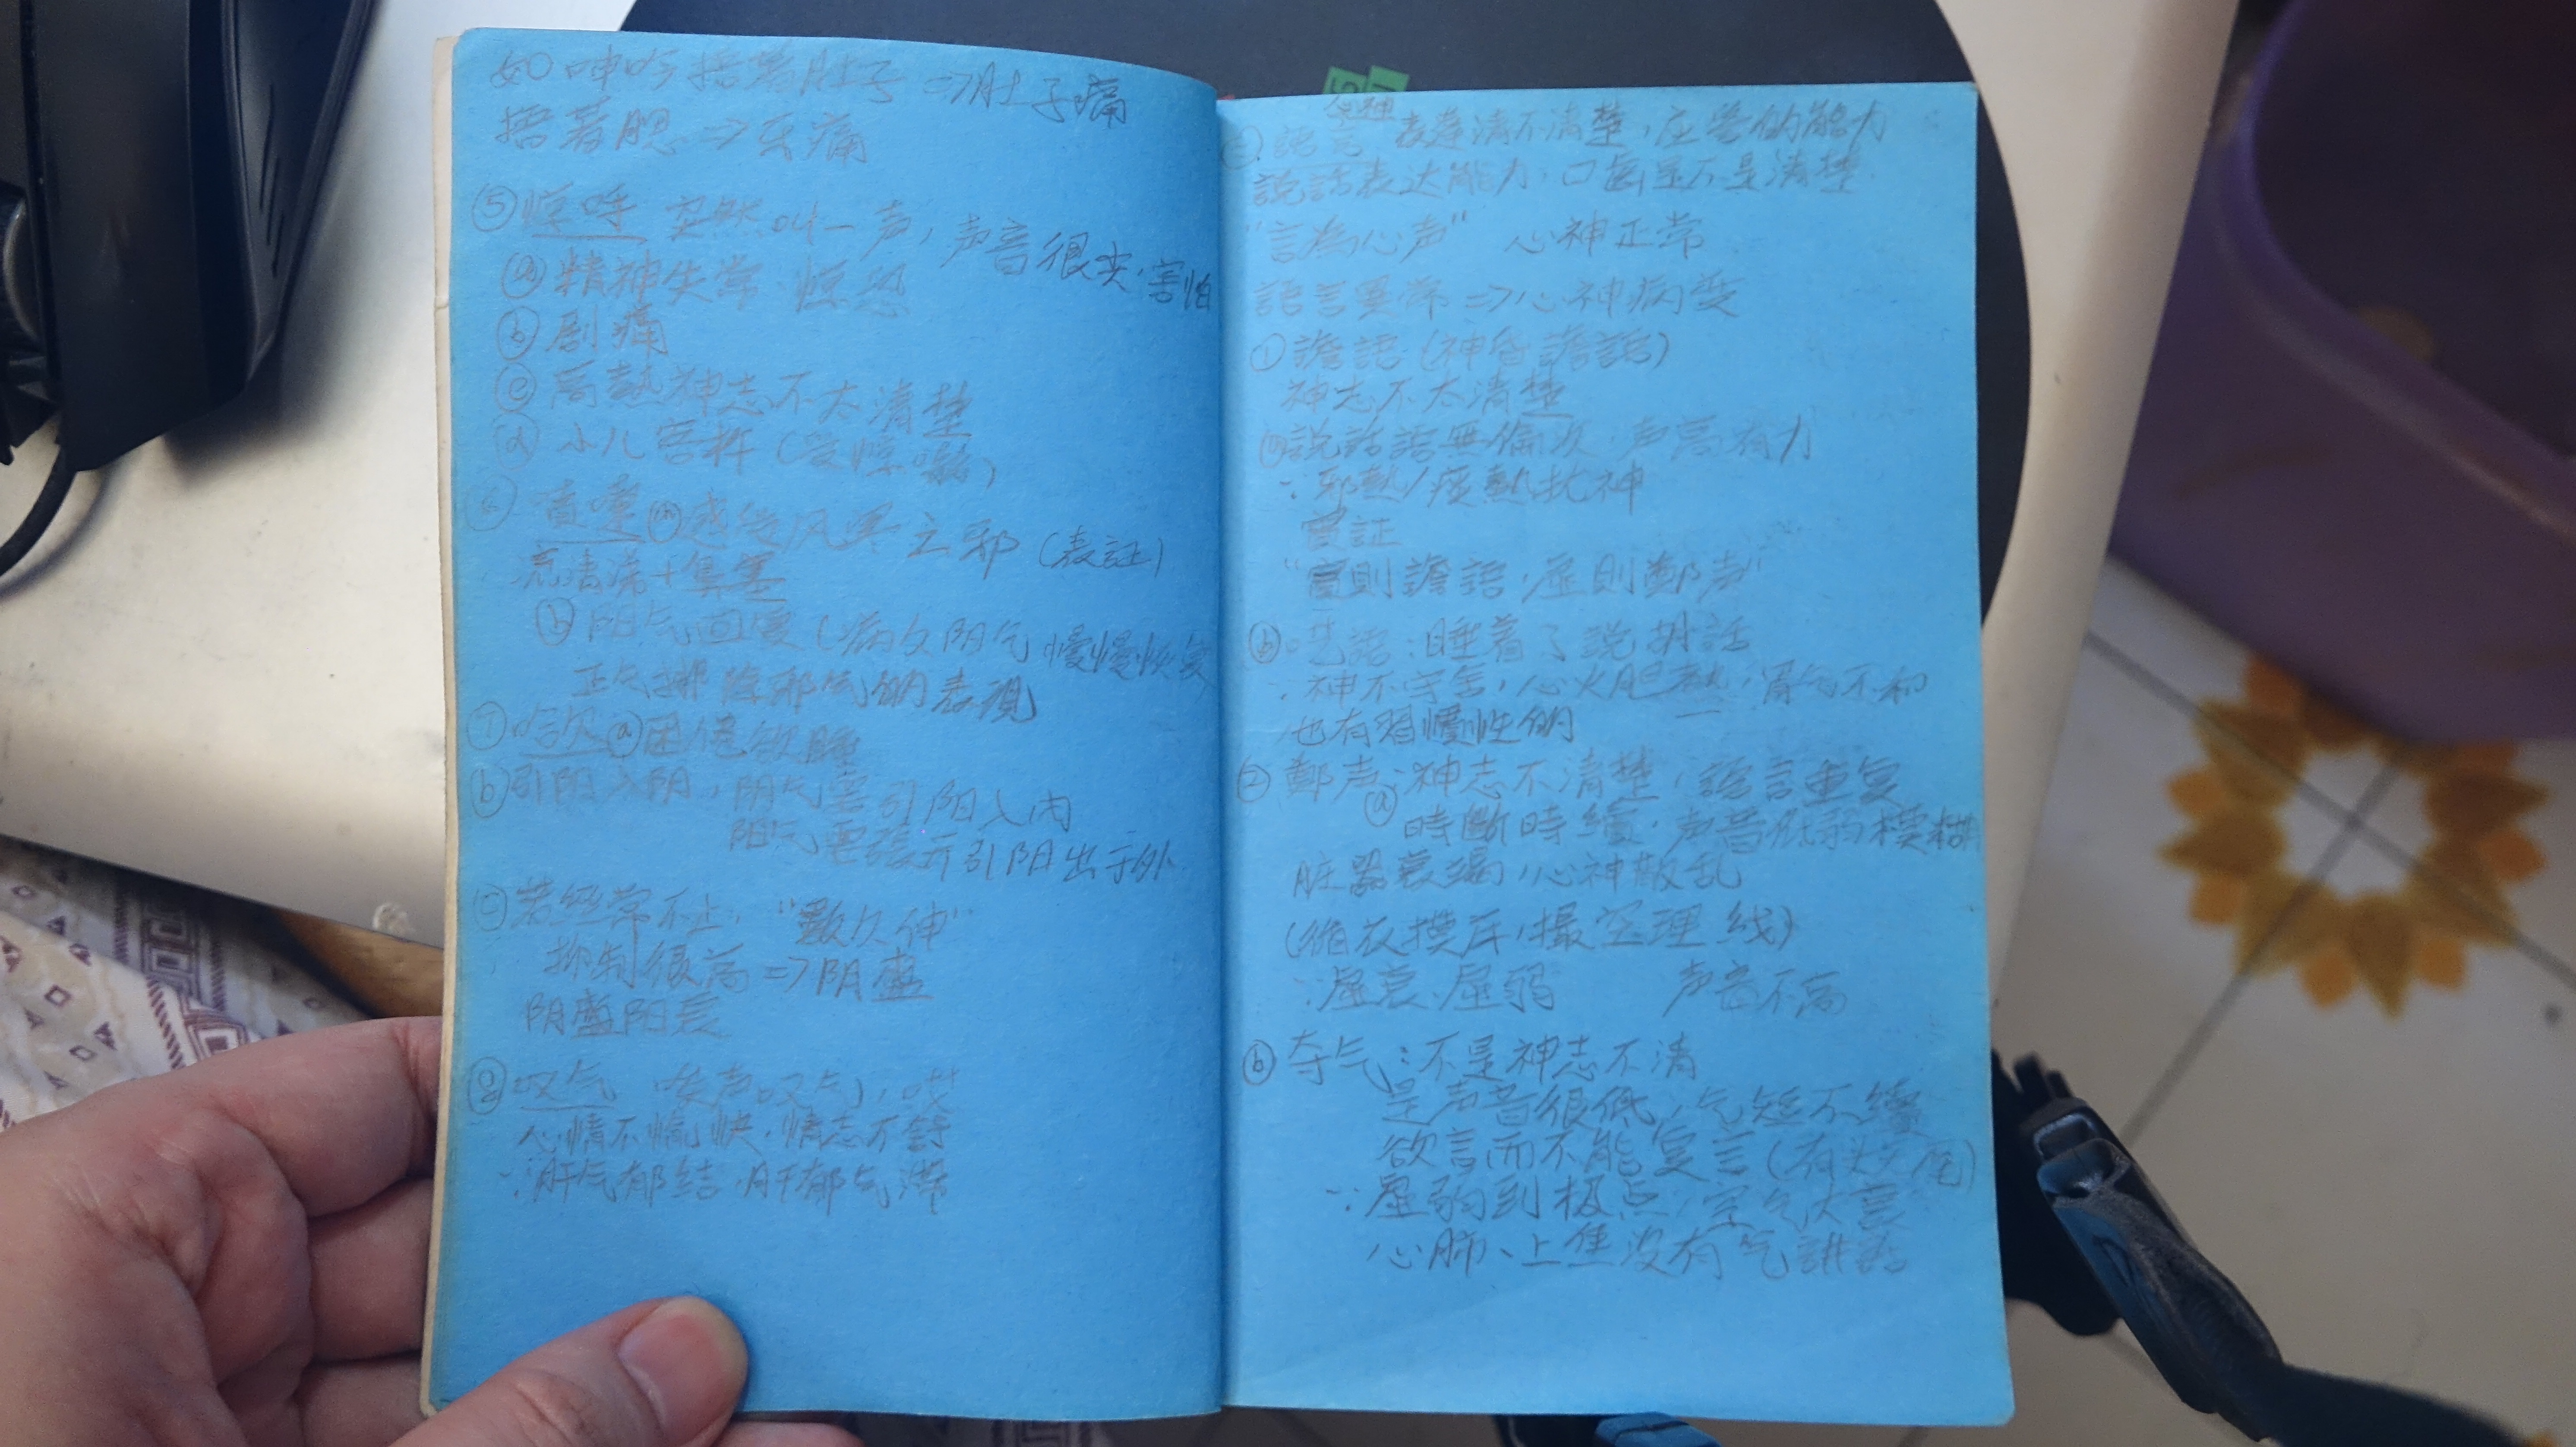 如呻吟捂着肚子⇒肚子痛
捂着腮⇒牙痛
⑤惊呼 突然叫一声，声音很尖，害怕
ⓐ精神失常 惊恐
ⓑ剧痛
ⓒ高熱神志不太清楚
ⓓ小儿客忤（受惊嚇）
⑥喷嚏ⓐ感受风寒之邪（表証）
流清涕+鼻塞
ⓑ阳气回复（病久阳气慢慢恢复
正气排除邪气的表现
⑦哈欠ⓐ困倦欲睡
ⓑ引阳入阴，阴气要引阳入内
阳气要張开引阴出于外
ⓒ若经常不止，“數欠伸”
抑制很高⇒阴盛
阴盛阳衰
⑧叹气 唉声叹气，哎
心情不愉快，情志不舒
∵肝气郁结，肝郁气滞
心神
㊁語言 表達清不清楚，应答的能力
説話表达能力，口齒是不是清楚
“言為心声” 心神正常
語言異常⇒心神病变
①譫語（神昏譫語）
神志不太清楚
ⓐ説話語無倫次，声高有力
∵邪熱/痰熱扰神
實証
“實則譫語，虚則鄭声”
ⓑ呓語：睡着了说胡話
∵神不守舍，心火胆热，胃气不和
也有習慣性的
②鄭声：神志不清楚，語言重复
ⓐ時斷時續，声音低弱模糊
脏器衰竭，心神散乱
（循衣摸床，撮空理线）
∵虚衰、虚弱 声音不高
ⓑ夺气：不是神志不清
是声音很低，气短不續
欲言而不能复言（有头 尾）
∵虚弱到极点，宗气大衰
心肺、上焦没有气講話